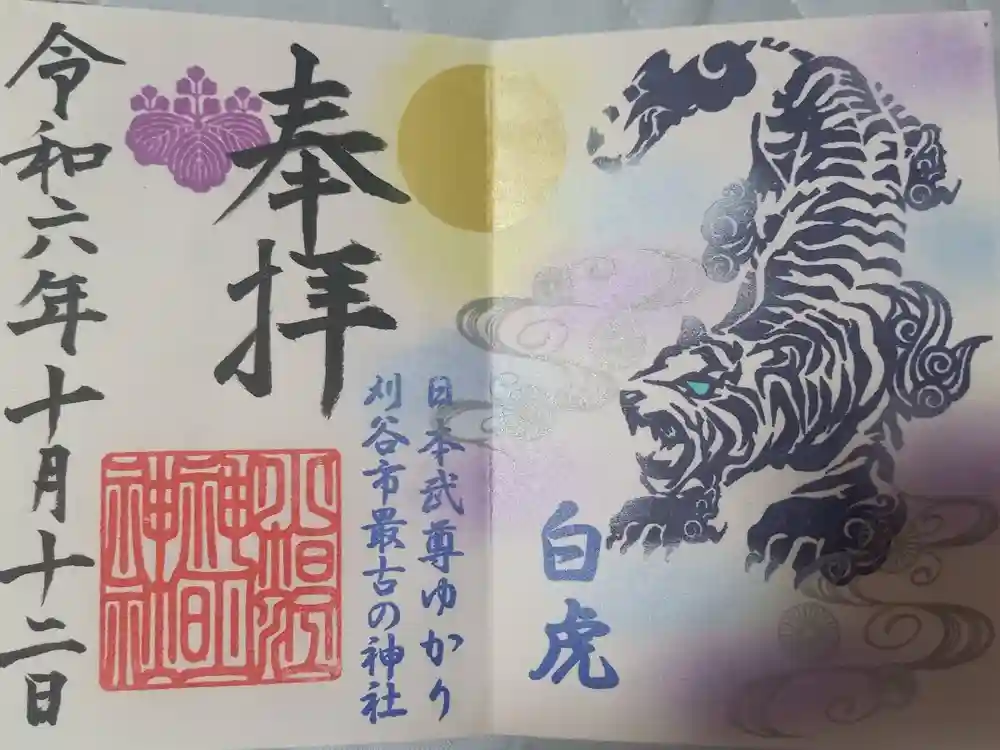 白虎
日本武尊ゆかり
刈谷市最古の神社
奉拝
令和六年十月十二日